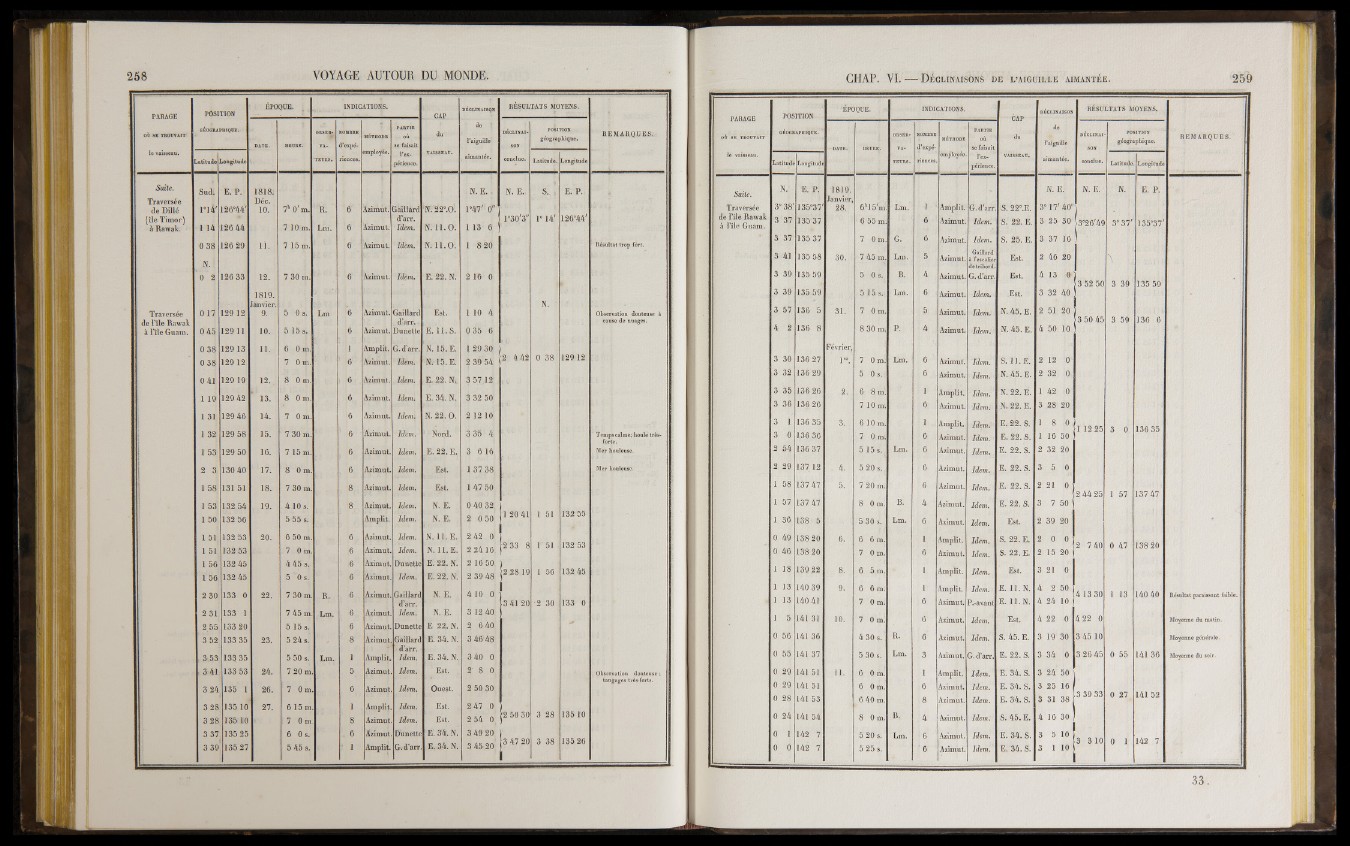 258 VOYAGE AUTOUR DU MONDE.
PARAGE où se trouvait le vaisseau. | POSITION GÉOGRAPHIQUE. Latitude Longitude | ÉPOQUE. DATE. HEURE. | INDICATIONS. OBSERVATEURS. NOMBRE d'expériences. MÉTHODE employée. PARTIE où se faisait l'expérience. | CAP du VAISSEAU. | DÉCLINAISON de l'aiguille aimantée. | RÉSULTATS MOYENS. DÉCLINAISON conclue. POSITION géographique. Latitude. Longitude | REMARQUES.
Suite. Sud. E. P. 1818. N. E. N. E. S. E. P.
Traversée de Dillé (île Timor) à Rawak. Déc.
1°14' 126°44' 10. 7h 0' m. R. 6 Azimut. Gaillard d'arr. N. 22°.O. 1°47' 0"
1 14 126 44 7 10 m. Lm. 6 Azimut. Idem. N. 11. O. 1 13 6 1°30'3" 1° 14' 126°44'
0 38 126 29 11. 7 15 m. 6 Azimut. Idem. N. 11. O. 1 8 20 Résultat trop fort.
N.
0 2 126 33 12. 7 30 m. 6 Azimut. Idem. E. 22. N. 2 16 0
1819. Janvier. N.
Traversée de l'île Rawak à l'île Guam.
0 17 129 12 9. 5 0 s. Lm 6 Azimut. Gaillard d'arr. Est. 1 10 4 Observation douteuse à cause de nuages.
0 45 129 11 10. 5 15 s. 6 Azimut. Dunette E. 11. S. 0 35 6
0 38 129 13 11. 6 0 m. 1 Amplit. G. d'arr. N. 15. E. 1 29 30
0 38 129 12 7 0 m. 6 Azimut. Idem. N. 15. E. 2 39 54 2 4 42 0 38 129 12
0 41 129 19 12. 8 0 m. 6 Azimut. Idem. E. 22. N. 3 57 12
1 19 129 42 13. 8 0 m. 6 Azimut. Idem. E. 34. N. 3 32 50
1 31 129 46 14. 7 0 m. 6 Azimut. Idem. N. 22. O. 2 12 10
1 32 129 58 15. 7 30 m. 6 Azimut. Idem. Nord. 3 35 4 Temps calme; houle très-forte.
1 53 129 50 16. 7 15 m. 6 Azimut. Idem. E. 22. E. 3 6 16 Mer houleuse.
2 3 130 40 17. 8 0 m. 6 Azimut. Idem. Est. 1 37 38 Mer houleuse.
1 58 131 51 18. 7 30 m. 8 Azimut. Idem. Est. 1 47 50
1 53 132 54 19. 4 10 s. 8 Azimut. Idem. N. E. 0 40 32
1 50 132 56 5 55 s. Amplit. Idem. N. E. 2 0 50 1 20 41 1 51 132 55
1 51 132 53 20. 6 50 m. 6 Azimut. Idem. N. 11. E. 2 42 0
1 51 132 53 7 0 m. 6 Azimut. Idem. N. 11. E. 2 24 16 2 33 8 1 51 132 53
1 56 132 45 4 45 s. 6 Azimut. Dunette E. 22. N. 2 16 50
1 56 132 45 5 0 s. 6 Azimut. Idem. E. 22. N. 2 39 48 2 28 19 1 56 132 45
2 30 133 0 22. 7 30 m. R. 6 Azimut. Gaillard d'arr. N. E. 4 10 0
2 31 133 1 7 45 m. Lm. 6 Azimut. Idem. N. E. 3 12 40 3 41 20 2 30 133 0
2 55 133 20 5 15 s. 6 Azimut. Dunette E 22. N. 2 6 40
3 52 133 35 23. 5 24 s. 8 Azimut. Gaillard d'arr. E. 34. N. 3 46 48
3 53 133 35 5 50 s. Lm. 1 Amplit. Idem. E. 34. N. 3 40 0
3 41 133 53 24. 7 20 m. 5 Azimut. Idem. Est. 2 8 0 Observation douteuse; tangages très-forts.
3 24 135 1 26. 7 0 m. 6 Azimut. Idem. Ouest. 2 50 30
3 28 135 10 27. 6 15 m. 1 Amplit. Idem. Est. 2 47 0
3 28 135 10 7 0 m. 8 Azimut. Idem. Est. 2 54 0 2 50 30 3 28 135 10
3 37 135 25 6 0 s. 6 Azimut. Dunette E. 34. N. 3 49 20
3 39 135 27 5 45 s. 1 Amplit. G. d'arr. E. 34. N. 3 45 20 3 47 20 3 38 135 26
CHAP. VI. — DÉCLINAISONS DE L'AIGUILLE AIMANTÉE. 259
PARAGE où se trouvait le vaisseau. | POSITION GÉOGRAPHIQUE. Latitude Longitude | ÉPOQUE. DATE. HEURE. | INDICATIONS. OBSERVATEURS. NOMBRE d'expériences. MÉTHODE employée. PARTIE où se faisait l'expérience. | CAP du VAISSEAU. | DÉCLINAISON de l'aiguille aimantée. | RÉSULTATS MOYENS. DÉCLINAISON conclue. POSITION géographique. Latitude. Longitude | REMARQUES.
Suite. N. E. P. 1819. N. E. N. E. N. E. P.
Traversée de l'île Rawak à l'île Guam. Janvier,
3° 38' 135°37' 28. 6h15'm. Lm. 1 Amplit. G.d'arr. S. 22°.E. 3° 17' 40"
3 37 135 37 6 50 m. 6 Azimut. Idem. S. 22. E. 3 25 30 3°26'49 3°37' 135°37'
3 37 135 37 7 0 m. G. 6 Azimut. Idem. S. 25. E. 3 37 16
3 41 135 58 30. 7 45 m. Lm. 5 Azimut. Gaillard à l'escalier de tribord. Est. 2 46 20
3 39 135 59 5 0 s. B. 4 Azimut. G. d'arr. Est. 4 13 0
3 39 135 59 5 15 s. Lm. 6 Azimut. Idem. Est. 3 32 40 3 52 50 3 39 135 59
3 57 136 5 31. 7 0 m. 5 Azimut. Idem. N. 45. E. 2 51 20
4 2 136 8 8 30 m. P. 4 Azimut. Idem. N. 45. E. 4 50 10 3 50 45 3 59 136 6
Février,
3 30 136 27 1er. 7 0 m. Lm. 6 Azimut. Idem. S. 11. E. 2 12 0
3 32 136 29 5 0 s. 6 Azimut. Idem. N. 45. E. 2 32 0
3 35 136 26 2. 6 8 m. 1 Amplit. Idem. N. 22. E. 1 42 0
3 36 136 26 7 10 m. 6 Azimut. Idem. N. 22. E. 3 28 20
3 1 136 35 3. 6 10 m. 1 Amplit. Idem. E. 22. S. 1 8 0
3 0 136 36 7 0 m. 6 Azimut. Idem. E. 22. S. 1 16 50 1 12 25 3 0 136 35
2 54 136 37 5 15 s. Lm. 6 Azimut. Idem. E. 22. S. 2 32 20
2 29 137 12 4. 5 20 s. 6 Azimut. Idem. E. 22. S. 3 5 0
1 58 137 47 5. 7 20 m. 6 Azimut. Idem. E. 22. S. 2 21 0
1 57 137 47 8 0 m. B. 4 Azimut. Idem. E. 22. S. 3 7 50 2 44 25 1 57 137 47
1 36 138 5 5 30 s. Lm. 6 Azimut. Idem. Est. 2 39 20
0 49 138 20 6. 6 6 m. 1 Amplit. Idem. S. 22. E. 2 0 0
0 46 138 20 7 0 m. 6 Azimut. Idem. S. 22. E. 2 15 20 2 7 40 0 47 138 20
1 18 139 22 8. 6 5 m. 1 Amplit. Idem. Est. 3 21 0
1 13 140 39 9. 6 6 m. 1 Amplit. Idem. E. 11. N. 4 2 50
1 13 140 41 7 0 m. 6 Azimut. P.-avant E. 11. N. 4 24 10 4 13 30 1 13 140 40 Résultat paraissant faible.
1 5 141 31 10. 7 0 m. 6 Azimut. Idem. Est. 4 22 0 4 22 0 Moyenne du matin.
0 56 141 36 4 30 s. R. 6 Azimut. Idem. S. 45. E. 3 19 30 3 45 10 Moyenne générale.
0 55 141 37 5 30 s. Lm. 3 Azimut. G. d'arr. E. 22. S. 3 34 0 3 26 45 0 55 141 36 Moyenne du soir.
0 29 141 51 11. 6 0 m. 1 Amplit. Idem. E. 34. S. 3 24 50
0 29 141 51 6 0 m. 6 Azimut. Idem. E. 34. S. 3 25 16
0 28 141 53 6 40 m. 8 Azimut. Idem. E. 34. S. 3 31 38 3 39 33 0 27 141 52
0 24 141 54 8 0 m. R. 4 Azimut. Idem. S. 45. E. 4 16 30
0 1 142 7 5 20 s. Lm. 6 Azimut. Idem. E. 34. S. 3 5 10
0 0 142 7 5 25 s. 6 Azimut. Idem. E. 34. S. 3 1 10 3 3 10 0 1 142 7
33.